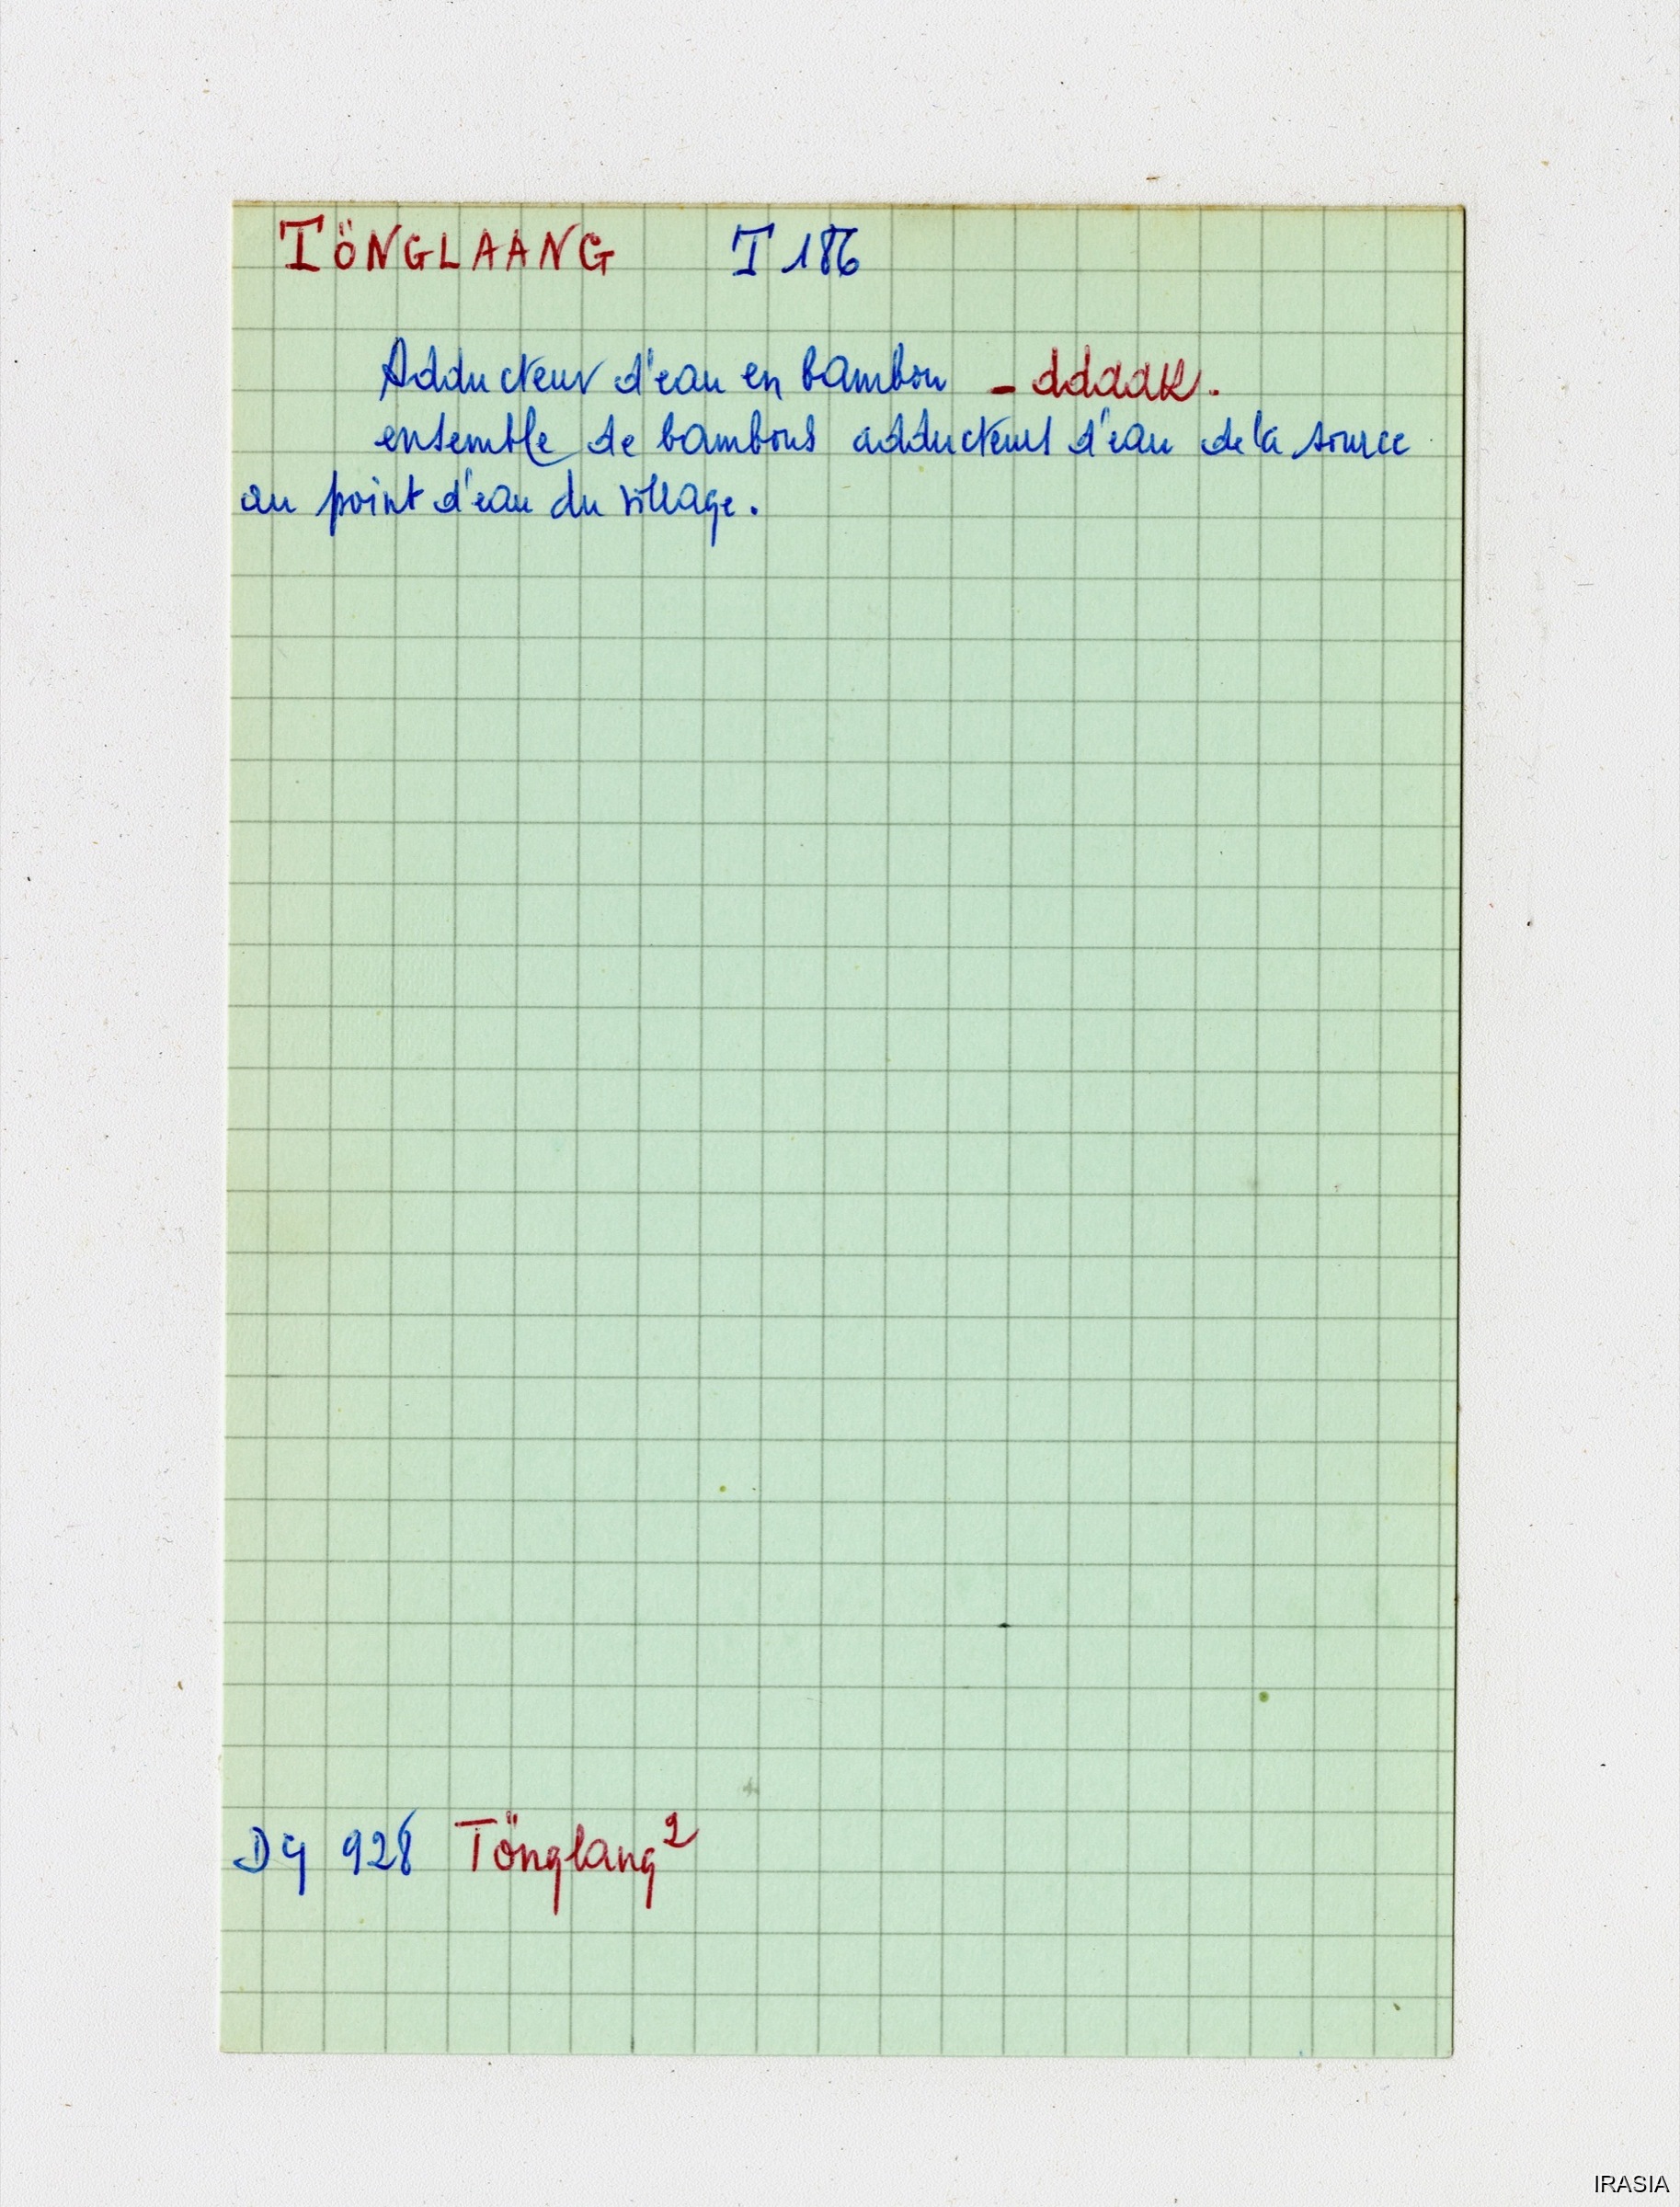 TÖNGLAANG T 186
Adducteur d'eau en bambou – ddaak.
ensemble de bambous adducteurs d'eau de la source
au point d'eau du village.
Dy 928 Tönglang²
IRASIA